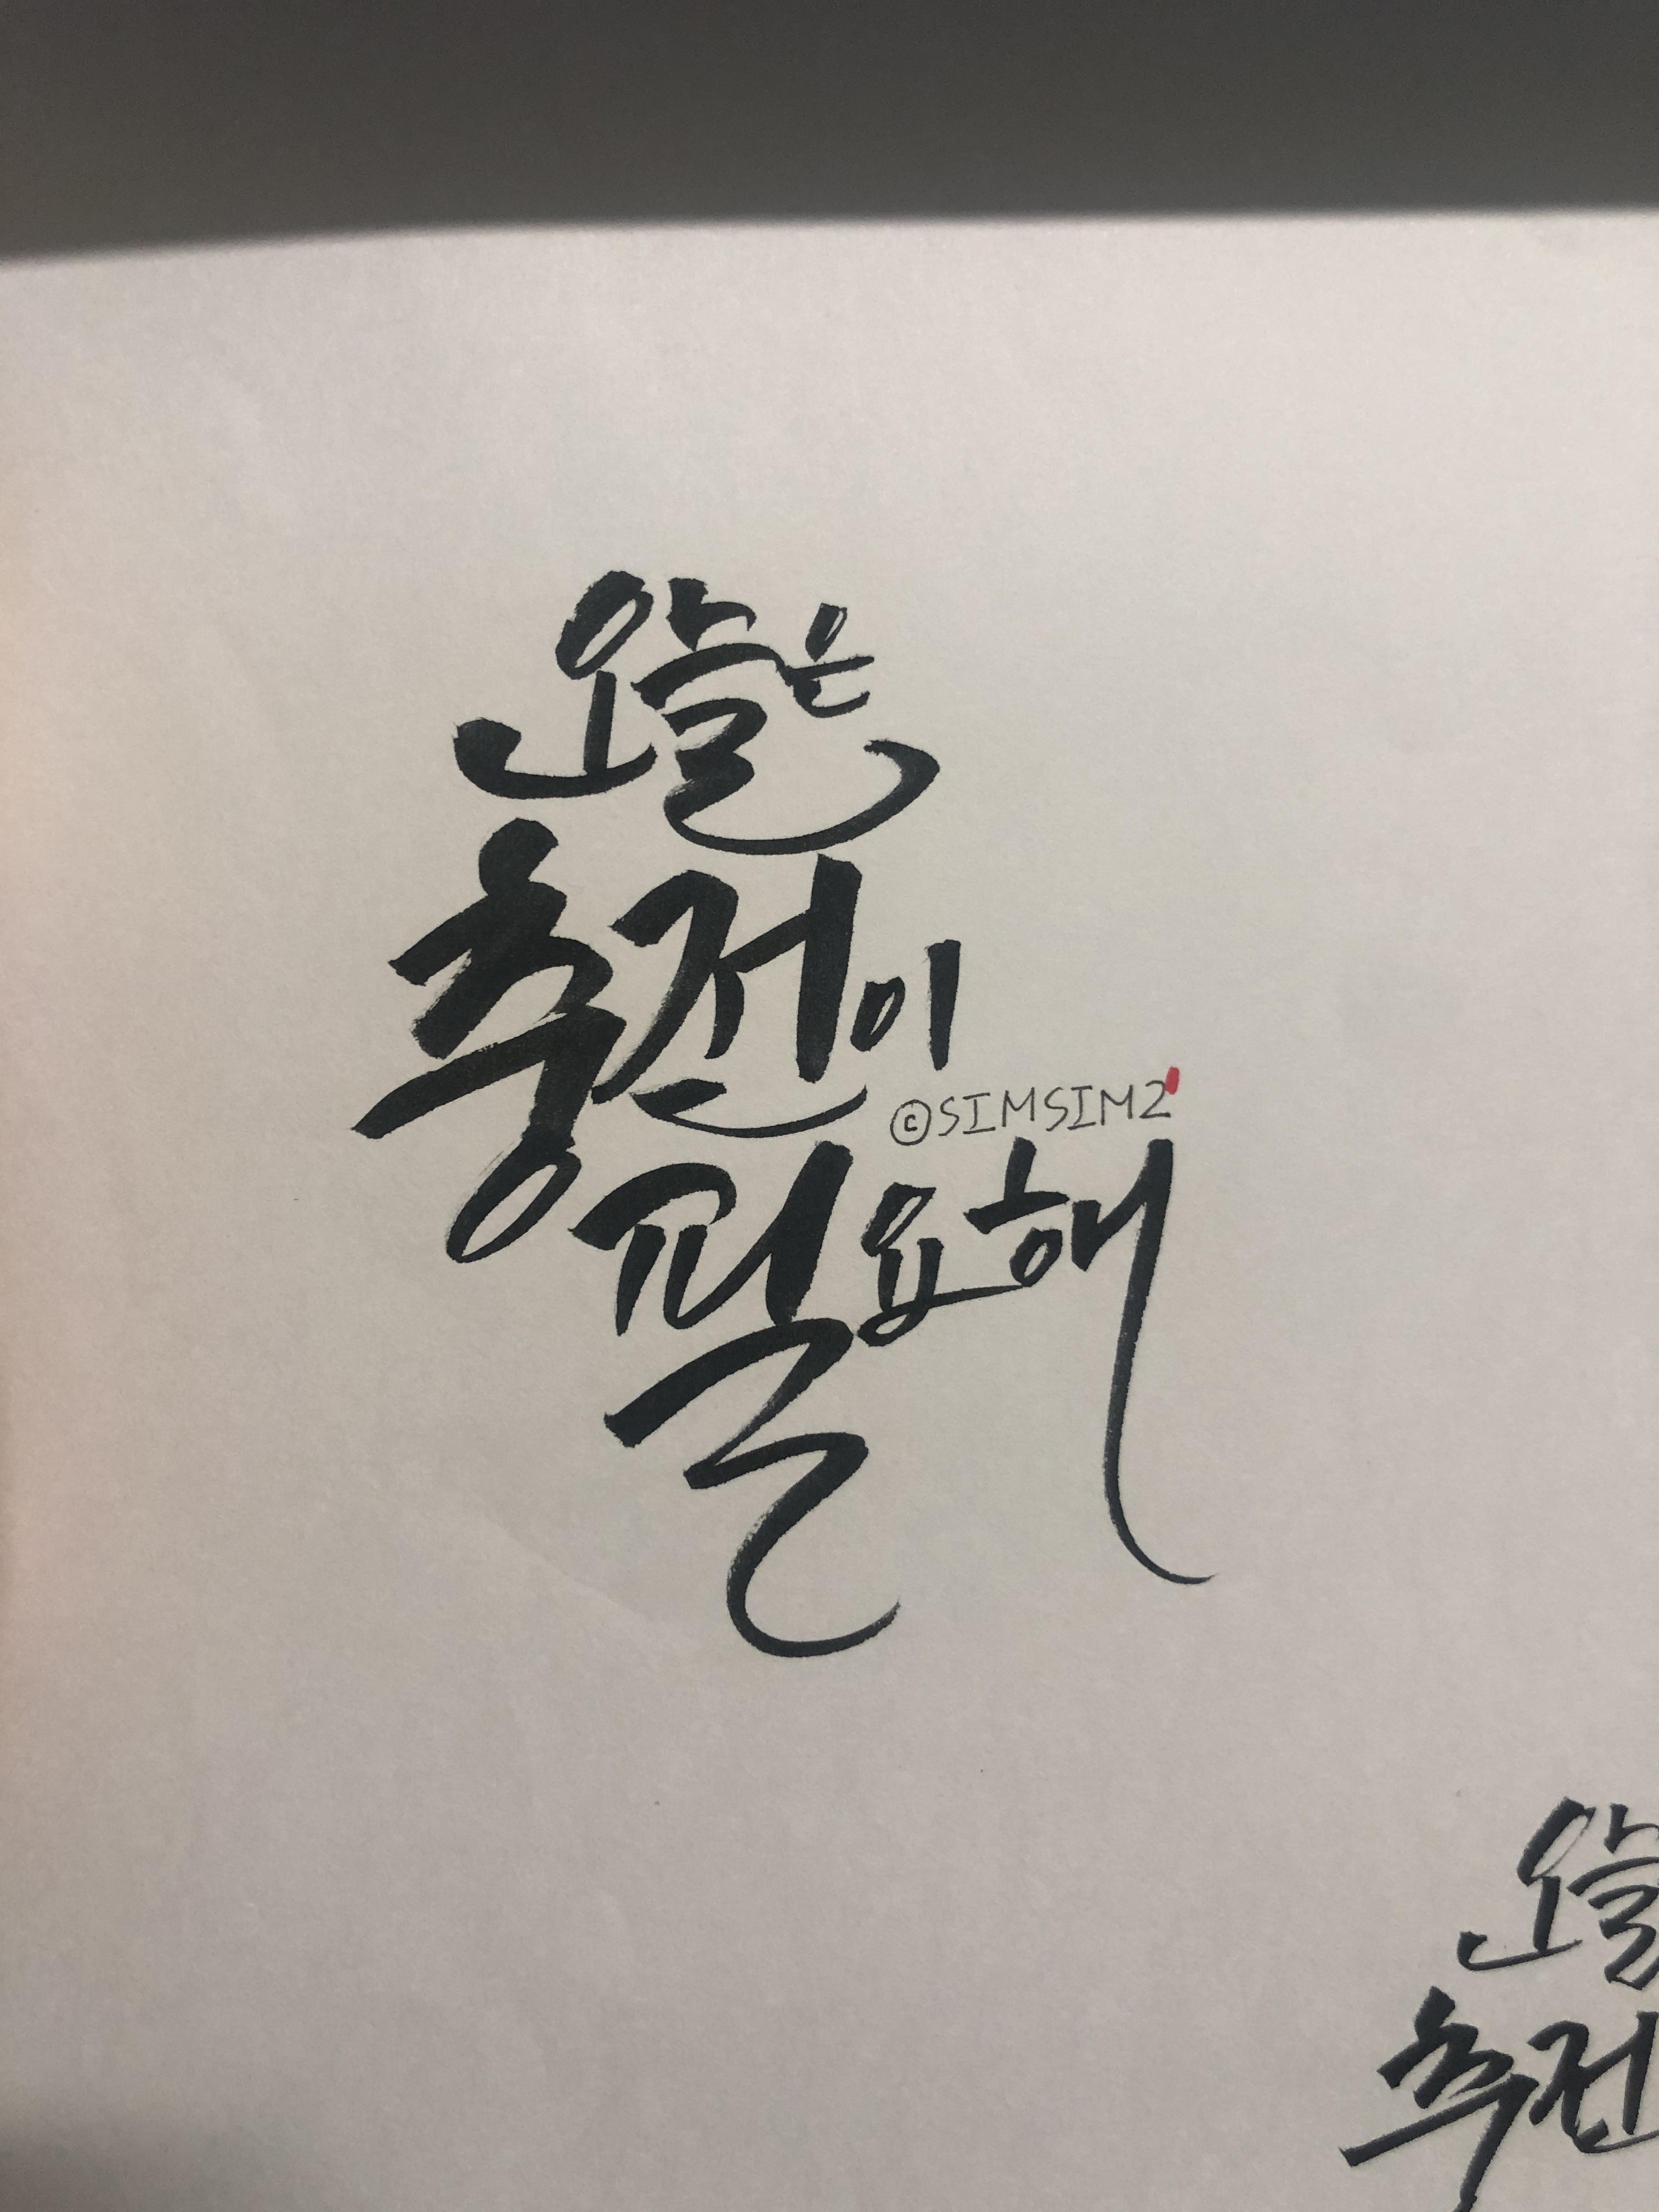 오늘은
충전이
©SIMSIM2
필요해
오늘
충전